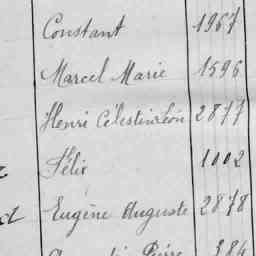 Constant 1967
Marcel Marie 1596
Henri Célestin Léon 2877
Félix 1002
Eugène Auguste 2878
Pierre 386